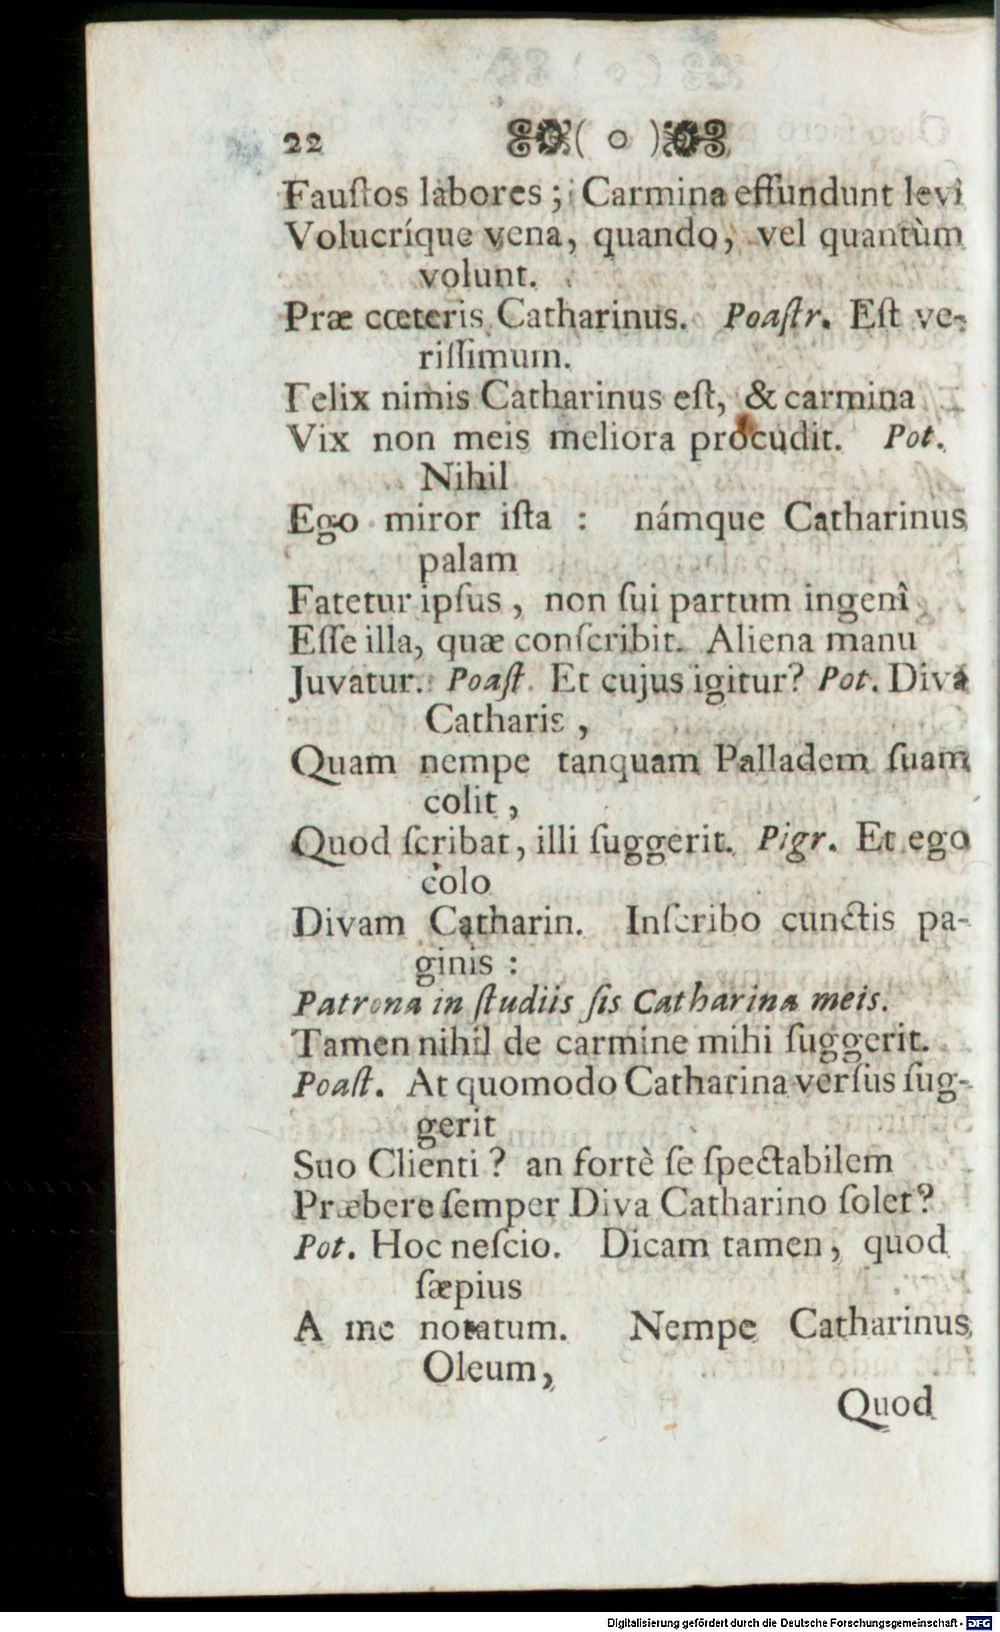 22 ( o )
Fauſtos labores ; Carmina effundunt levi
Volucríque vena, quando, vel quantùm
volunt.
Præ cœteris Catharinus. Poaſtr. Eſt ve-
riſſimum.
Felix nimis Catharinus eſt, & carmina
Vix non meis meliora procudit. Pot.
Nihil
Ego miror iſta : námque Catharinus
palam
Fatetur ipſus , non ſui partum ingenî
Eſſe illa, quæ conſcribit. Aliena manu
Juvatur. Poaſt. Et cujus igitur? Pot. Diva
Catharis ,
Quam nempe tanquam Palladem ſuam
colit ,
Quod ſcribat, illi ſuggerit. Pigr. Et ego
colo
Divam Catharin. Inſcribo cunctis pa-
ginis :
Patrona in ſtudiis ſis Catharina meis.
Tamen nihil de carmine mihi ſuggerit.
Poaſt. At quomodo Catharina verſus ſug-
gerit
Suo Clienti ? an fortè ſe ſpectabilem
Præbere ſemper Diva Catharino ſolet?
Pot. Hoc neſcio. Dicam tamen, quod
ſæpius
A me notatum. Nempe Catharinus
Oleum,
Quod
Digitalisierung gefördert durch die Deutsche Forschungsgemeinschaft - DFG